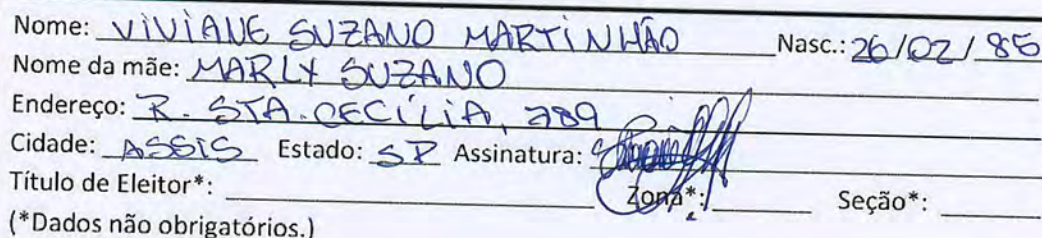 Nome: VIVIANE SUZANO MARTINHÃO Nasc.: 26/02/85
Nome da mãe: MARLY SUZANO
Endereço: R. STA. CECÍLIA, 789
Cidade: ASSIS Estado: SP Assinatura:
Título de Eleitor*: Zona*: Seção*:
(*Dados não obrigatórios.)